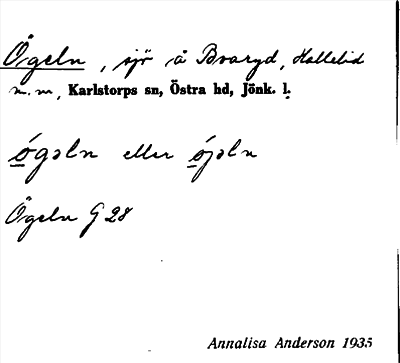 Ögeln, sjö å Bvaryd, Hallelid
m.m, Karlstorps sn, Östra hd, Jönk. l.
ógəln eller ójəln
Ögeln G 28
Annalisa Anderson 1935